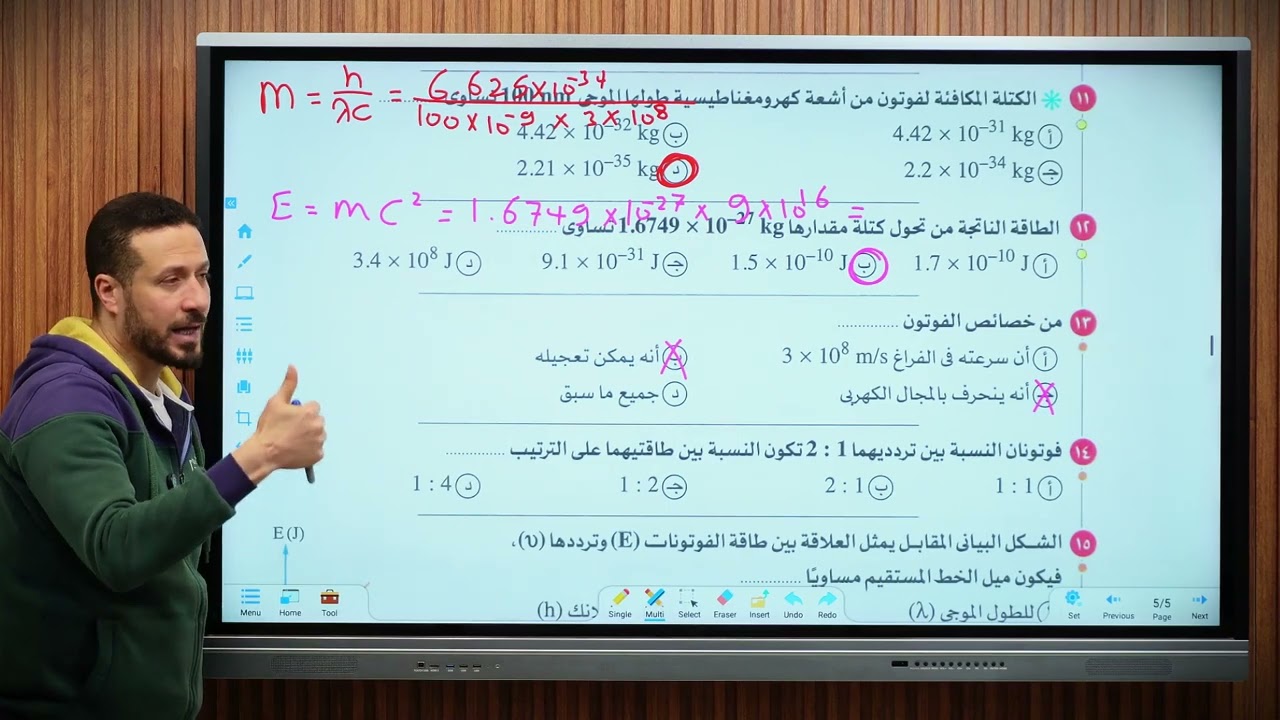 m = h/λc = 6.626×10⁻³⁴ / 100×10⁻⁹ × 3×10⁸
١١ الكتلة المكافئة لفوتون من أشعة كهرومغناطيسية طولها الموجى 100 nm تساوى
أ 4.42 × 10⁻³¹ kg ب 4.42 × 10⁻³² kg
ج 2.2 × 10⁻³⁴ kg د 2.21 × 10⁻³⁵ kg
E = mc² = 1.6749×10⁻²⁷ × 9×10¹⁶ =
١٢ الطاقة الناتجة من تحول كتلة مقدارها 1.6749 × 10⁻²⁷ kg تساوى ..............
أ 1.7 × 10⁻¹⁰ J ب 1.5 × 10⁻¹⁰ J ج 9.1 × 10⁻³¹ J د 3.4 × 10⁸ J
١٣ من خصائص الفوتون ..............
أ أن سرعته فى الفراغ 3 × 10⁸ m/s ب أنه يمكن تعجيله
ج أنه ينحرف بالمجال الكهربى د جميع ما سبق
١٤ فوتونان النسبة بين ترددیهما 1 : 2 تكون النسبة بين طاقتيهما على الترتيب ..............
أ 1 : 1 ب 2 : 1 ج 1 : 2 د 1 : 4
١٥ الشكل البيانى المقابل يمثل العلاقة بين طاقة الفوتونات (E) وترددها (υ)،
E (J)
فيكون ميل الخط المستقيم مساويًا ..............
للطول الموجى (λ) لانك (h)
Menu Home Tool Single Multi Select Eraser Insert Undo Redo Set Previous 5/5 Page Next